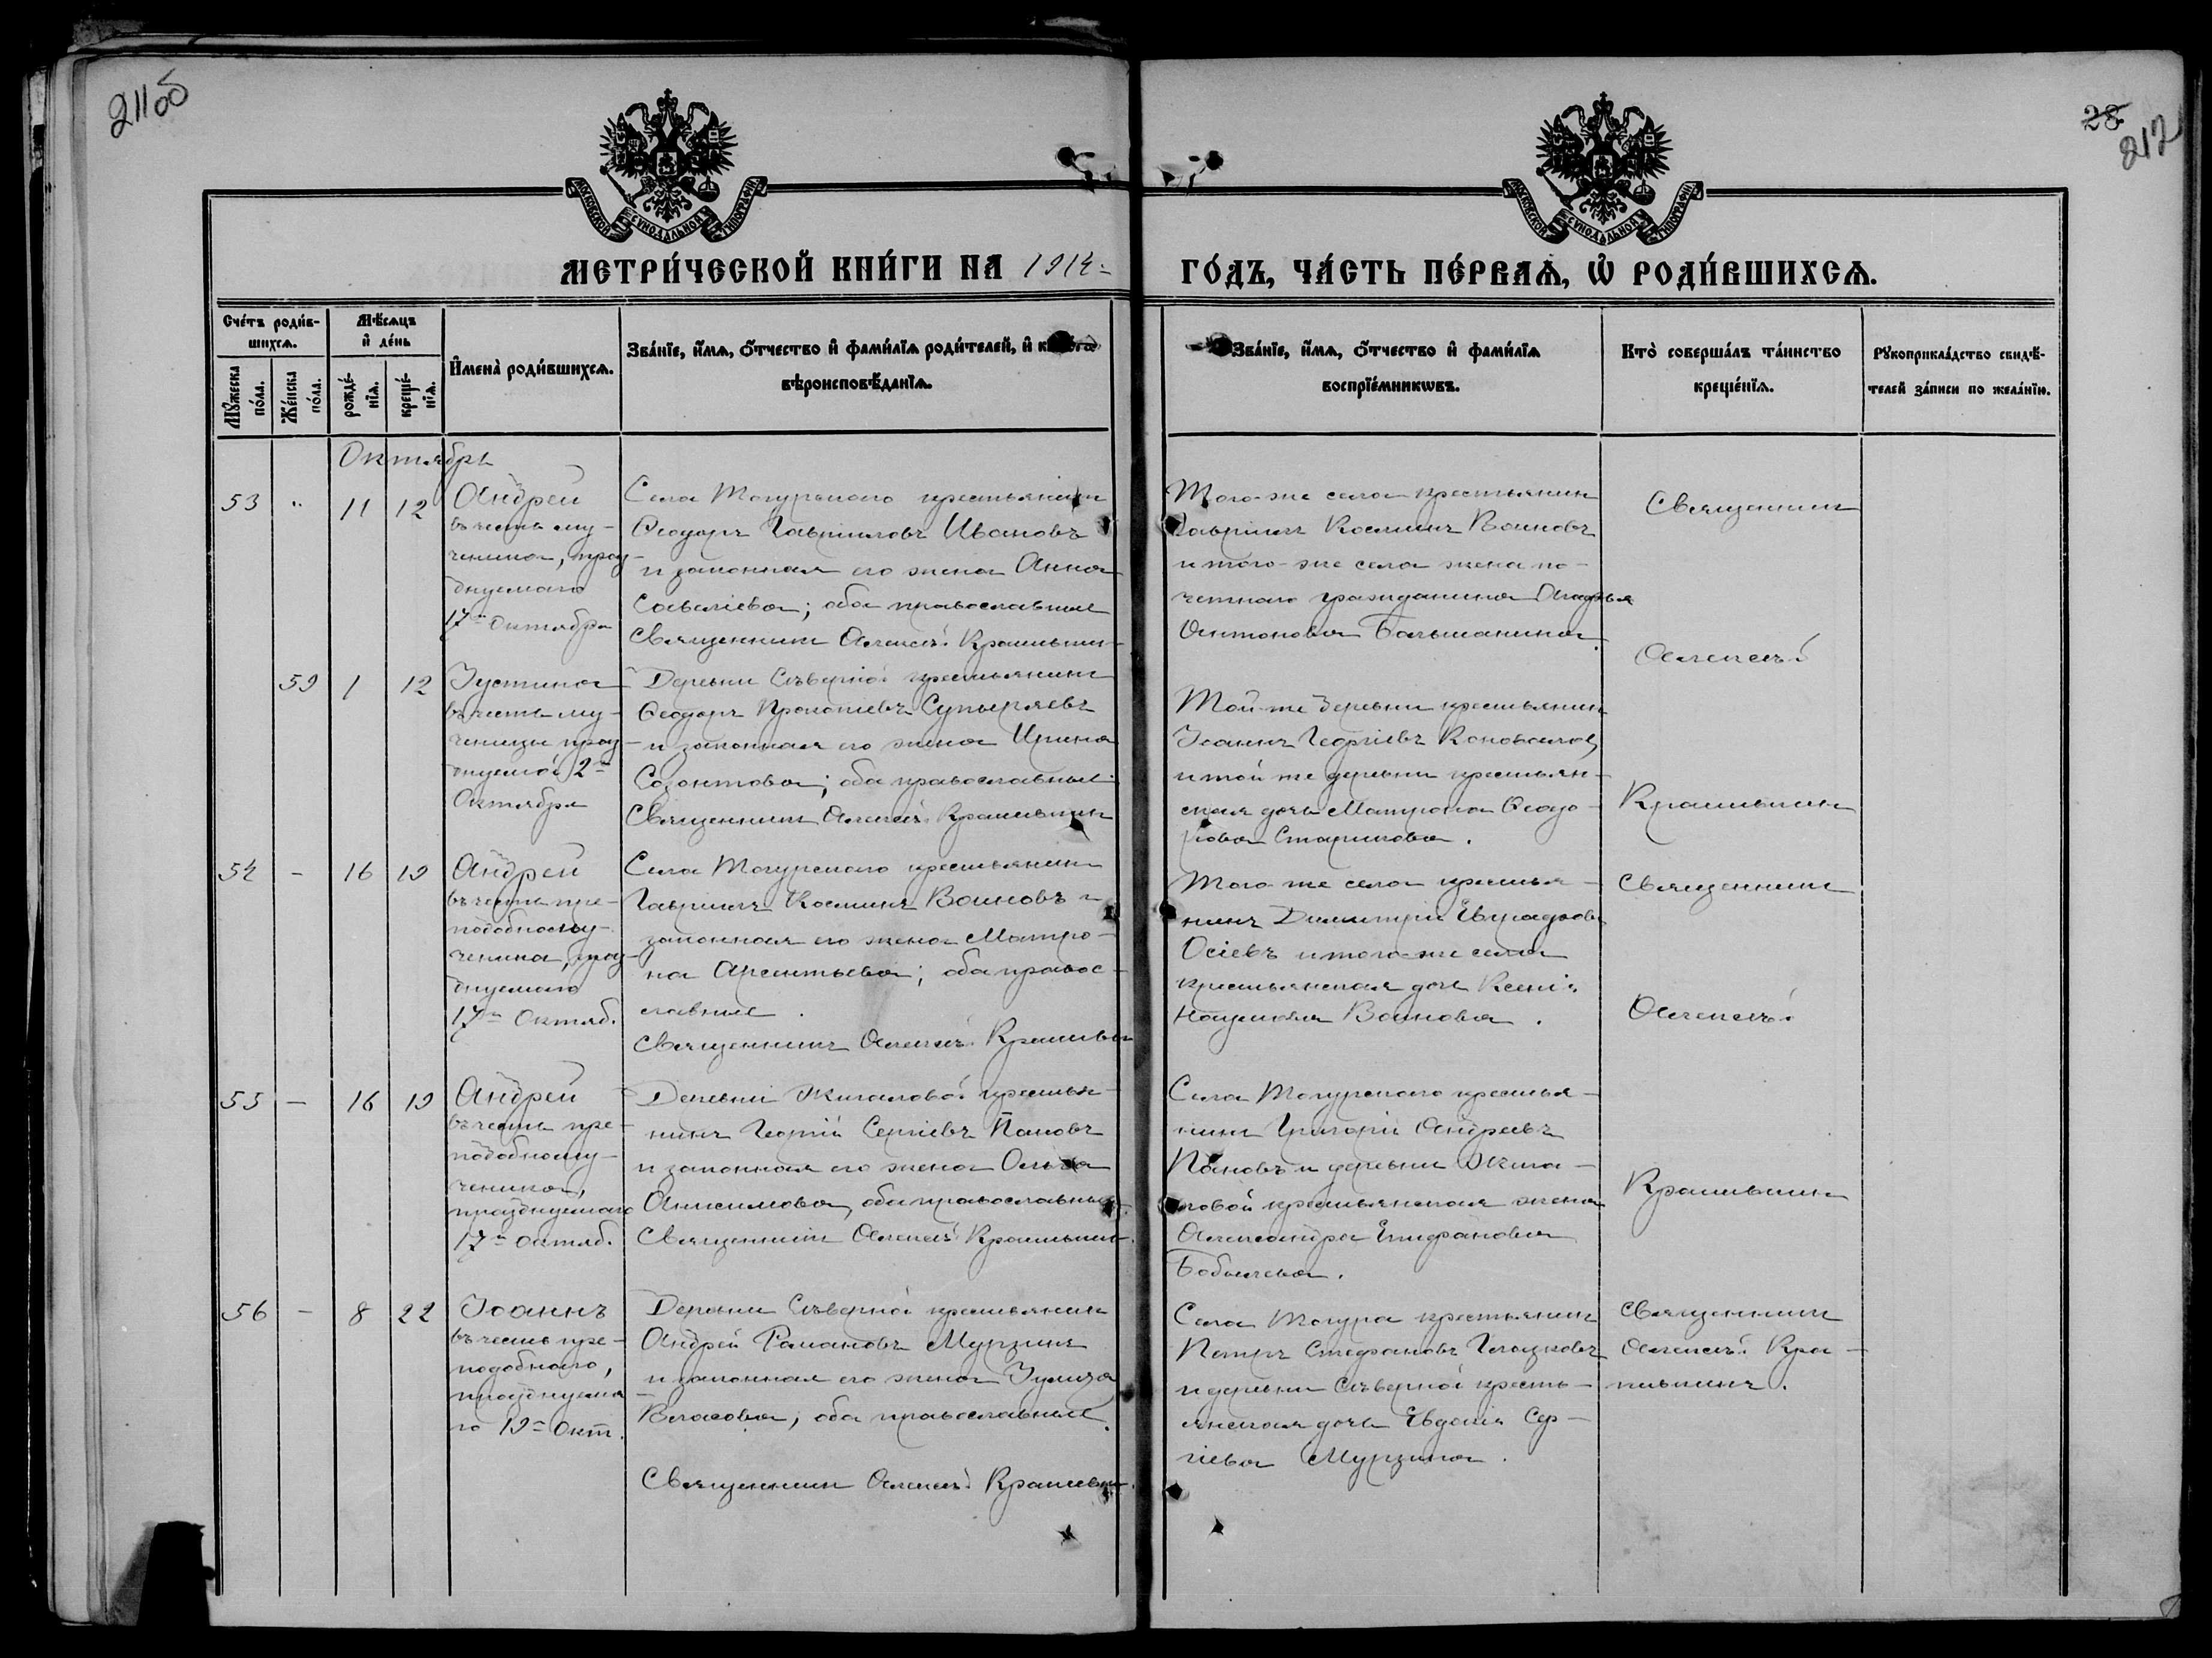 211об
28.
212
МОСКОВСКОЙ СѴНОДАЛЬНОЙ ТИПОГРАФІИ
МОСКОВСКОЙ СѴНОДАЛЬНОЙ ТИПОГРАФІИ
МЕТРИ́ЧЕСКОЙ КНИ́ГИ НА 1914 =
ГО́ДЪ, ЧА́СТЬ ПЕ́РВАѦ, Ѡ҆ РОДИ́ВШИХСѦ.
Сче́тъ роди́в-
шихсѧ.
Мѣ́сѧцъ
и҆ де́нь
Мꙋ́жеска
по́ла.
Же́нска
по́ла.
рожде́-
нїѧ.
креще́-
нїѧ.
И҆мена̀ роди́вшихсѧ.
Зва́нїе, и҆́мѧ, ѻ҆́тчество и҆ фами́лїѧ роди́телей, и҆
вѣроисповѣ́данїѧ.
Зва́нїе, и҆́мѧ, ѻ҆́тчество и҆ фами́лїѧ
воспрїе́мникѡвъ.
Кто̀ соверша́лъ та́инство
креще́нїѧ.
Рꙋкоприкла́дство свидѣ́-
телей за́писи по жела́нїю.
Октябрь
53 " 11 12
Андрей
въ честь му-
ченика, празд-
днуемаго
17го Октября
Села Тогурскаго крестьянинъ
Ѳеодоръ Гавриловъ Ивановъ
и законная его жена Анна
Савеліева; оба православные
Священникъ Алексѣй Крапивин
Того-же села крестьянин
Гавріилъ Космин Воиновъ
и того-же села жена по-
четнаго гражданина Агафья
Антоновна Большанина.
Священник
Алексѣй
Крапивин
59 1 12
Іустина
въ честь му-
ченицы празд-
днуемой 2го
Октября
Деревни Сѣверной крестьянинъ
Ѳеодоръ Прокопіевъ Супыряевъ
и законная его жена Ирина
Созонтова; оба православные.
Священникъ Алексѣй Крапивин
Той-же деревни крестьянин
Іоаннъ Георгіевъ Коновалов,
и той же деревни крестьян-
ская дочь Матрона Ѳеодо-
рова Старикова.
54 - 16 19
Андрей
въ честь пре-
подобному-
ченика, празд-
днуемаго
17го Октяб.
Села Тогурскаго крестьянин
Гавриилъ Косминъ Воиновъ и
законная его жена Матро-
на Арсентьева; оба правос-
славные.
Священникъ Алексѣй Крапивин
Того-же села крестья-
нинъ Димитрій Евграфовъ
Осіевъ и того-же села
крестьянская дочь Ксенія
Наумова Воинова.
Священник
Алексѣй
Крапивин
55 - 16 19
Андрей
въ честь пре-
подобному-
ченика,
празднуемаго
17го Октяб.
Деревни Жигаловой крестья-
нинъ Георгій Сергіевъ Пановъ
и законная его жена Ольга
Анисимова, оба православные.
Священникъ Алексѣй Крапивин.
Села Тогурскаго крестья-
нинъ Григорій Андреевъ
Пановъ и деревни Жига-
ловой крестьянская жена
Александра Епифанова
56 - 8 22
Іоаннъ
въ честь пре-
подобнаго,
празднуема
го 19го Окт.
Деревни Сѣверной крестьянин
Андрей Романовъ Мурзинъ
и законная его жена Іулита
Власова, оба православные.
Священник Алексѣй Крапивин
Села Тогура крестьянин
Петръ Стефановъ
и деревни Сѣверной кресть-
янская дочь Евдокія Сер-
гіева Мурзина.
Священник
Алексѣй Кра-
пивинъ.